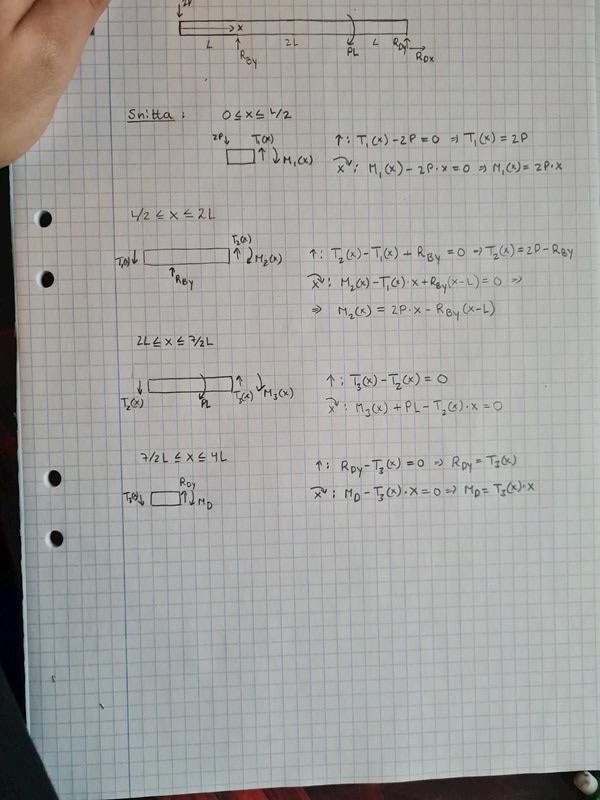 2P
x
L 2L PL L R_Dy
R_By R_Dx
Snitta: 0 ≤ x ≤ L/2
2P T₁(x) M₁(x)
↑: T₁(x) - 2P = 0 => T₁(x) = 2P
x: M₁(x) - 2P·x = 0 => M₁(x) = 2P·x
L/2 ≤ x ≤ 2L
T₁(x) T₂(x) M₂(x)
R_By
↑: T₂(x) - T₁(x) + R_By = 0 => T₂(x) = 2P - R_By
x: M₂(x) - T₁(x)·x + R_By(x-L) = 0 =>
=> M₂(x) = 2P·x - R_By(x-L)
2L ≤ x ≤ 7/2L
T₂(x) PL T₃(x) M₃(x)
↑: T₃(x) - T₂(x) = 0
x: M₃(x) + PL - T₂(x)·x = 0
7/2L ≤ x ≤ 4L
T₃(x) R_Dy M_D
↑: R_Dy - T₃(x) = 0 => R_Dy = T₃(x)
x: M_D - T₃(x)·x = 0 => M_D = T₃(x)·x